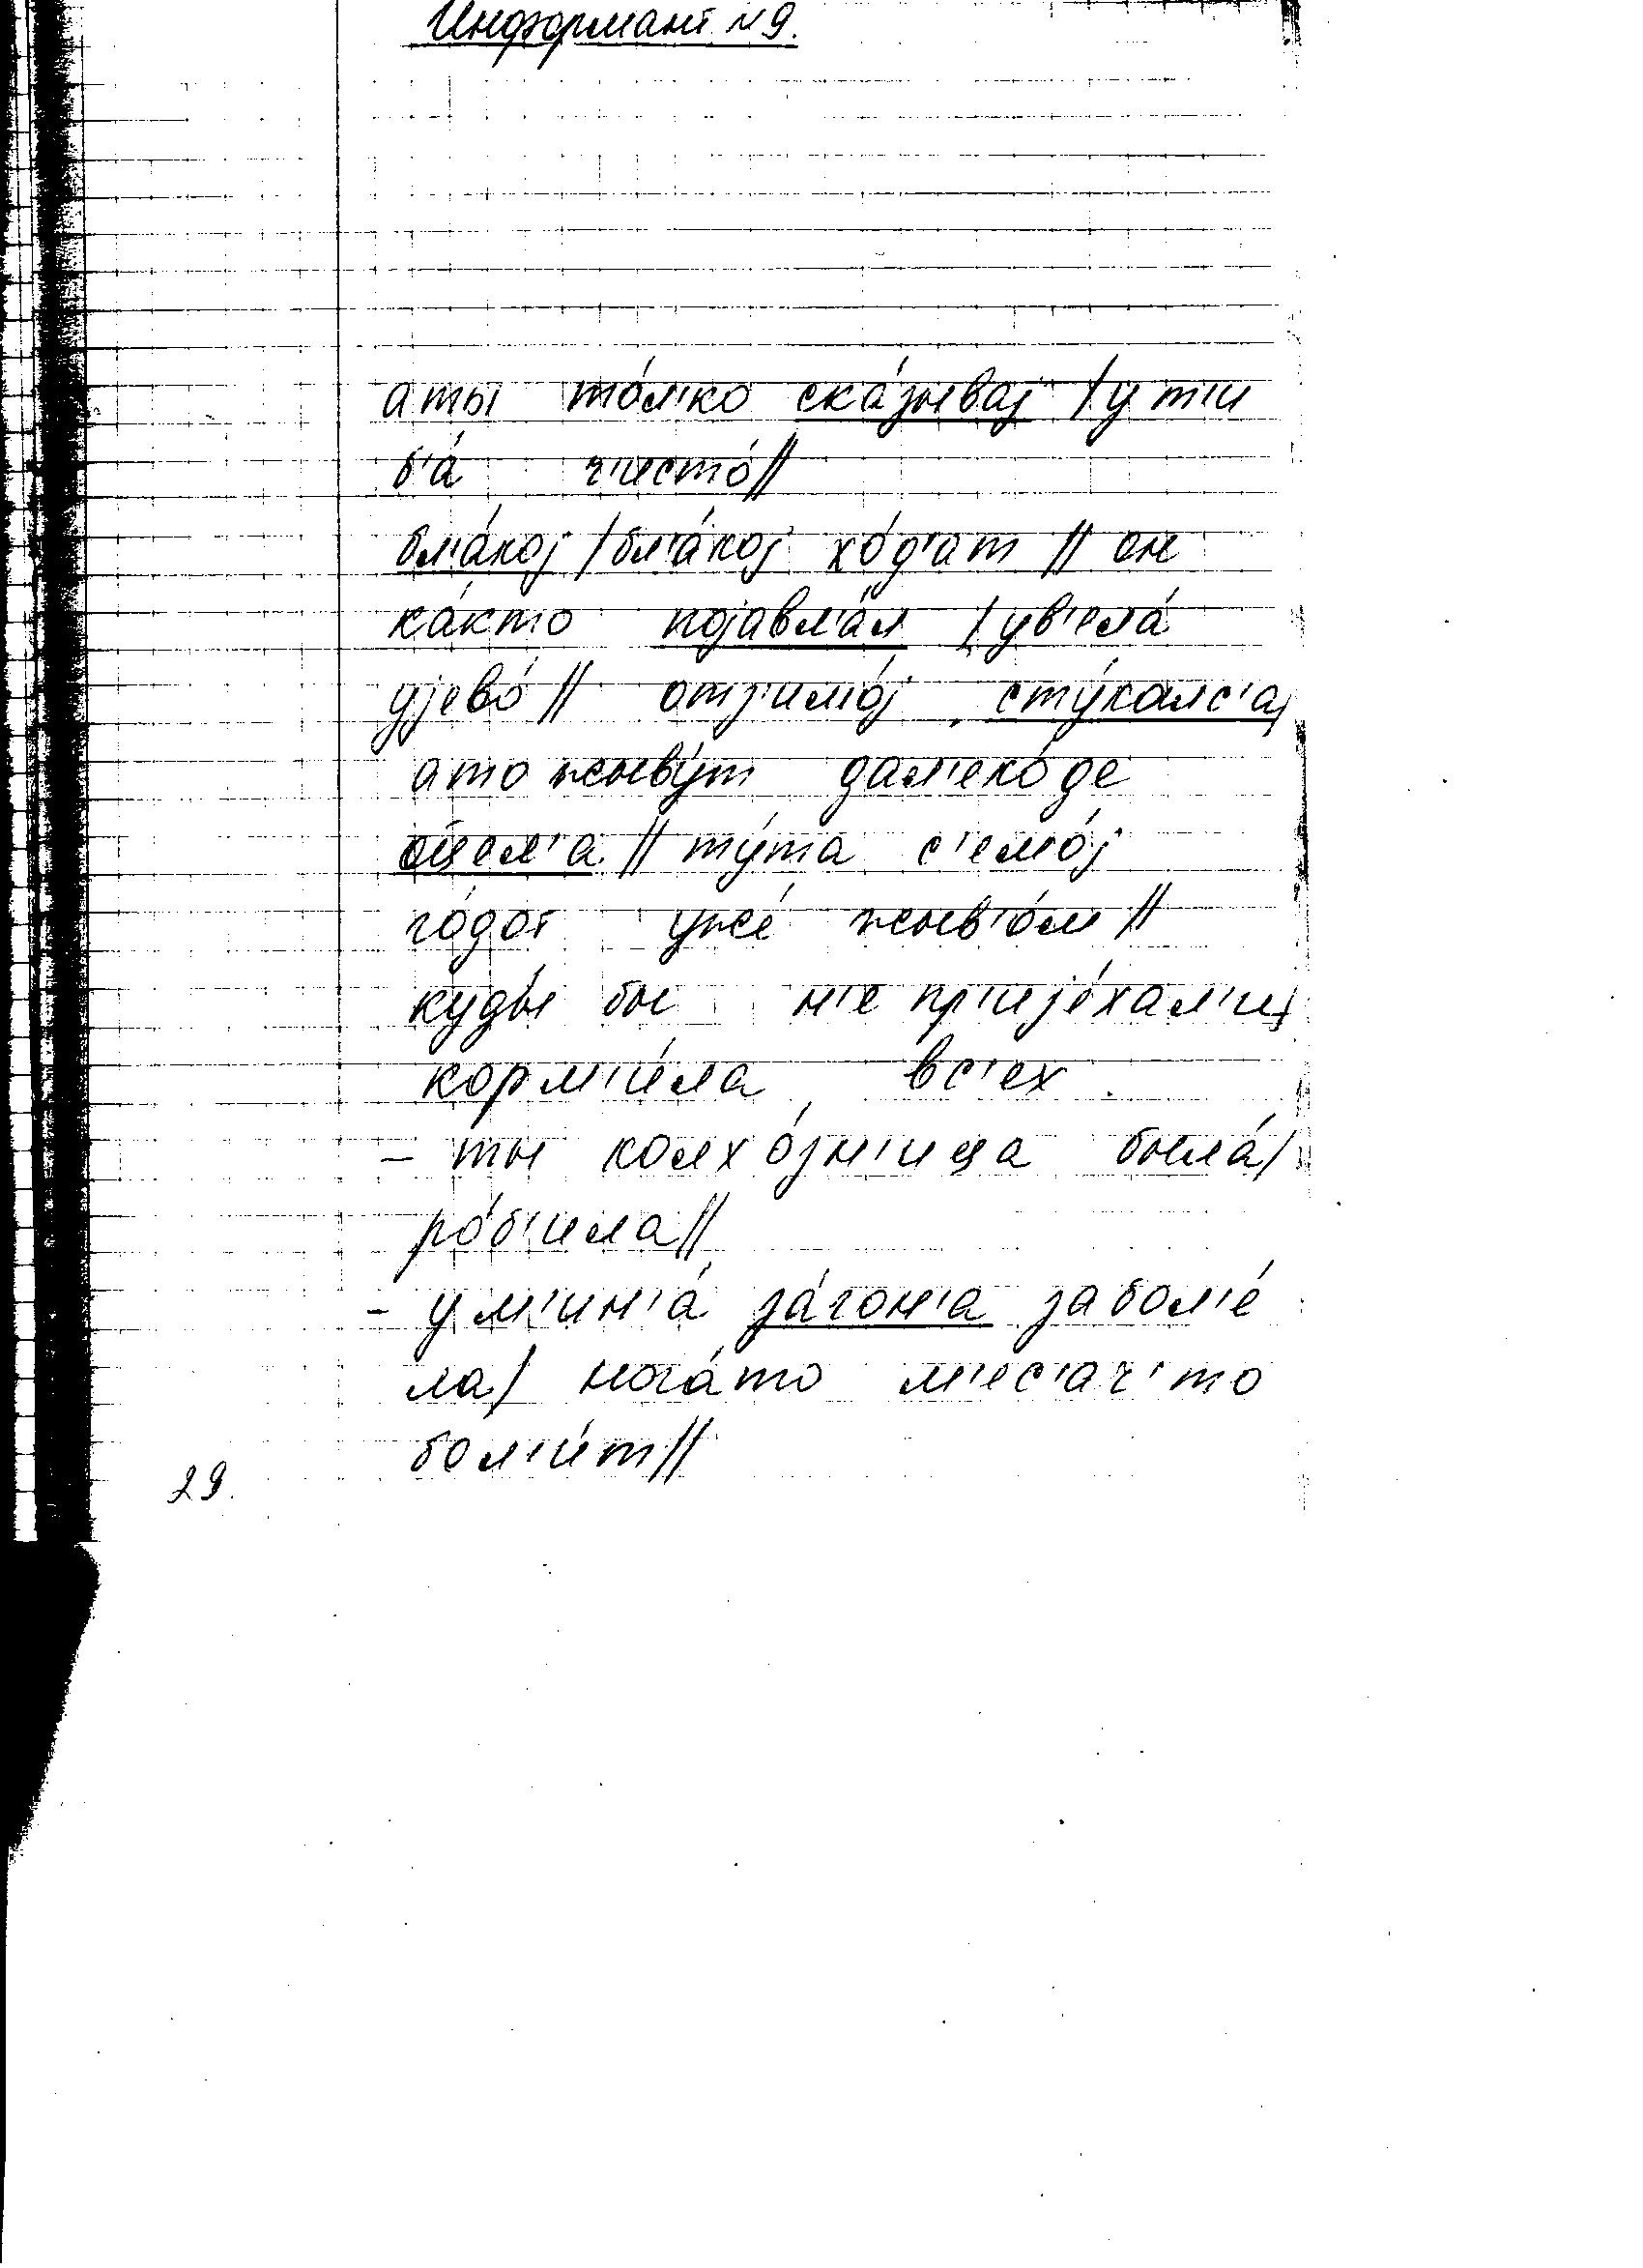 Информант №9.
аты то́л'ко ска́зывај / у т'и
б'а́ ч'исто́ //
бл'а́кој / бл'а́кој хо́д'ат // он
ка́кто појавл'а́л / ув'ела́
jјево́ // отз'имо́ј сту́калс'а /
ато живу́т дал'еко́де
// ту́та с'емо́ј
го́дот уже́ жыв'о́м //
куды́ бы н'е пр'ијéхал'и /
корм'и́ла вс'ех
– ты колхо́зн'ица была́ /
ро́б'ила //
– у м'ин'а́ за́гон'а забол'е́
ла / нога́то м'ес'ач'то
бол'и́т //
29.